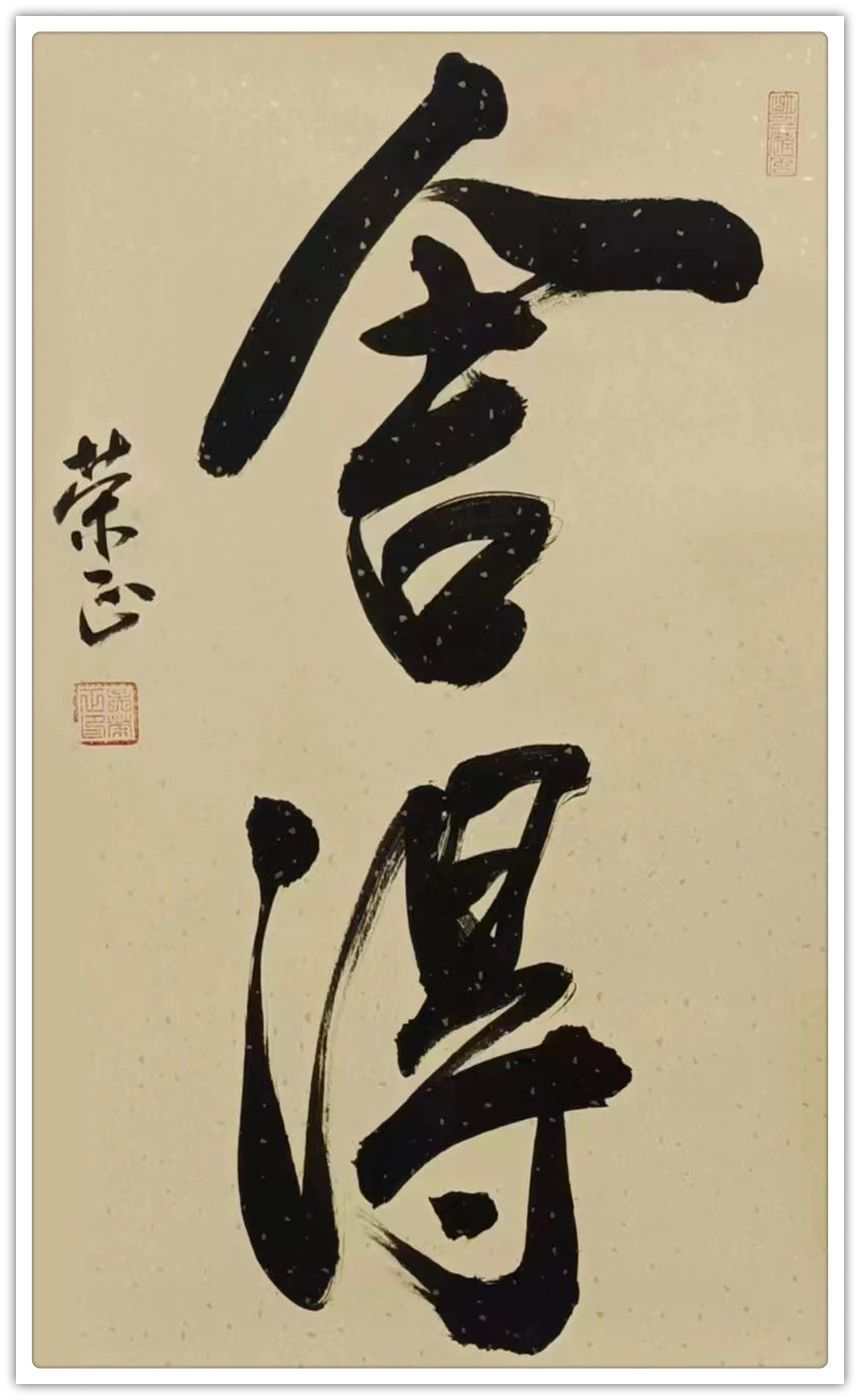 舍得
荣正